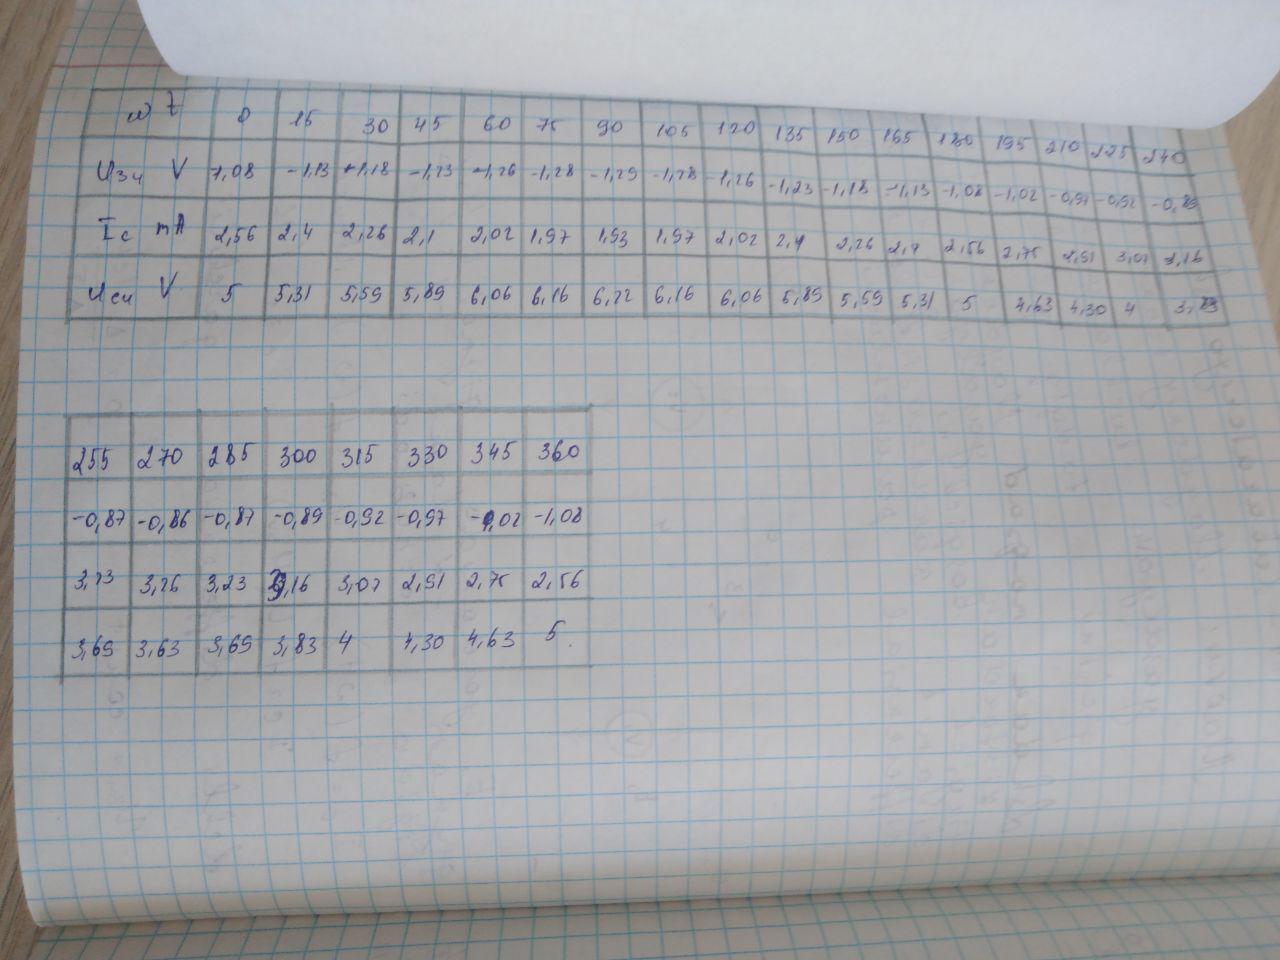 ωt 0 15 30 45 60 75 90 105 120 135 150 165 180 195 210 225 240
Uзи V 1,08 -1,13 -1,18 -1,23 -1,26 -1,28 -1,29 -1,28 -1,26 -1,23 -1,18 -1,13 -1,08 -1,02 -0,97 -0,92 -0,89
Ic mA 2,56 2,4 2,26 2,1 2,02 1,97 1,93 1,97 2,02 2,1 2,26 2,4 2,56 2,75 2,91 3,07 3,16
Uси V 5 5,31 5,59 5,89 6,06 6,16 6,22 6,16 6,06 5,89 5,59 5,31 5 4,63 4,30 4 3,83
255 270 285 300 315 330 345 360
-0,87 -0,86 -0,87 -0,89 -0,92 -0,97 -1,02 -1,08
3,23 3,26 3,23 3,16 3,07 2,91 2,75 2,56
3,69 3,63 3,69 3,83 4 4,30 4,63 5